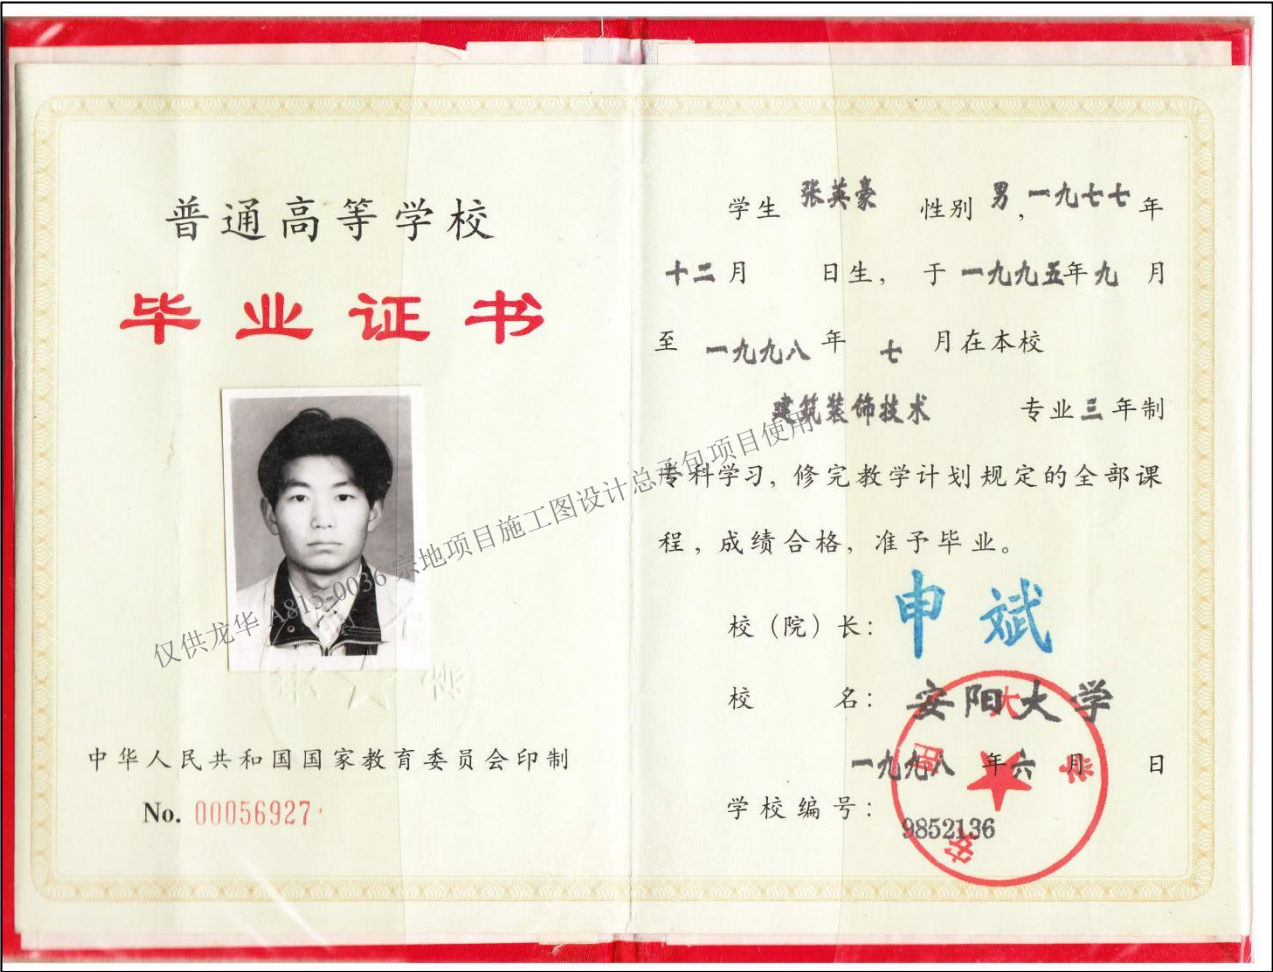 普通高等学校
毕业证书
中华人民共和国国家教育委员会印制
No. 00056927
学生 张英豪 性别 男,一九七七年
十二月 日生, 于一九九五年九月
至 一九九八年 七 月在本校
建筑装饰技术 专业三年制
专科学习, 修完教学计划规定的全部课
程, 成绩合格, 准予毕业。
校（院）长: 申斌
校 名: 安阳大学
一九九八 年六月 日
学校编号: 9852136
安阳大学
仅供龙华 A815-0036 宗地项目施工图设计总承包项目使用